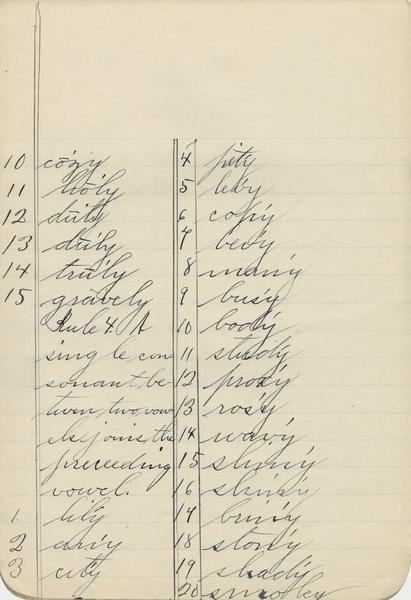 10 cozy
11 holy
12 duty
13 duly
14 truly
15 gravely
Rule 4. A
single con
sonant be
tween two vow
els joins the
preceeding
vowel.
1. lily
2 any
3 city
4 pity
5 levy
6 copy
7 bevy
8 many
9 busy
10 body
11 study
12 proxy
13 rosy
14 wavy
15 slimy
16 shiny
17 briny
18 stony
19 shady
20 smoky